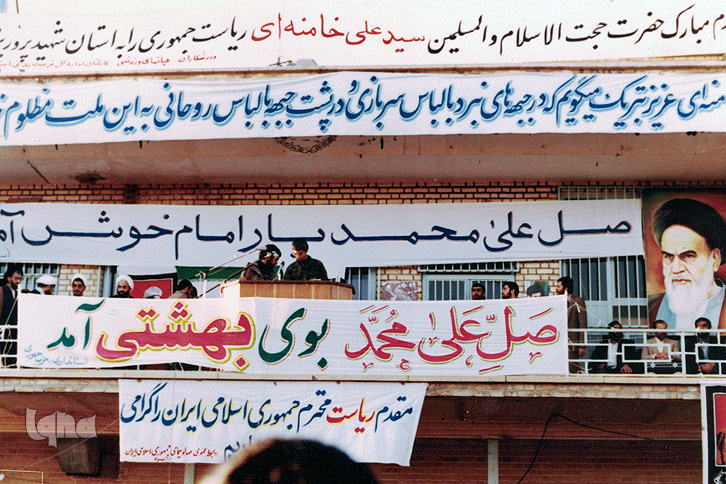 مبارک حضرت حجت الاسلام والمسلمین سید علی خامنه ای ریاست جمهوری را به استان شهید پرور
ورزشکاران
ای عزیز تبریک میگویم که در جبهه های نبرد با لباس سربازی و در پشت جبهه با لباس روحانی به این ملت مظلوم
صل علی محمد یار امام خوش آمد
صل علی محمد بوی بهشتی آمد
مقدم ریاست محترم جمهوری اسلامی ایران را گرامی
روابط عمومی صدا و سیمای جمهوری اسلامی ایران
iqna